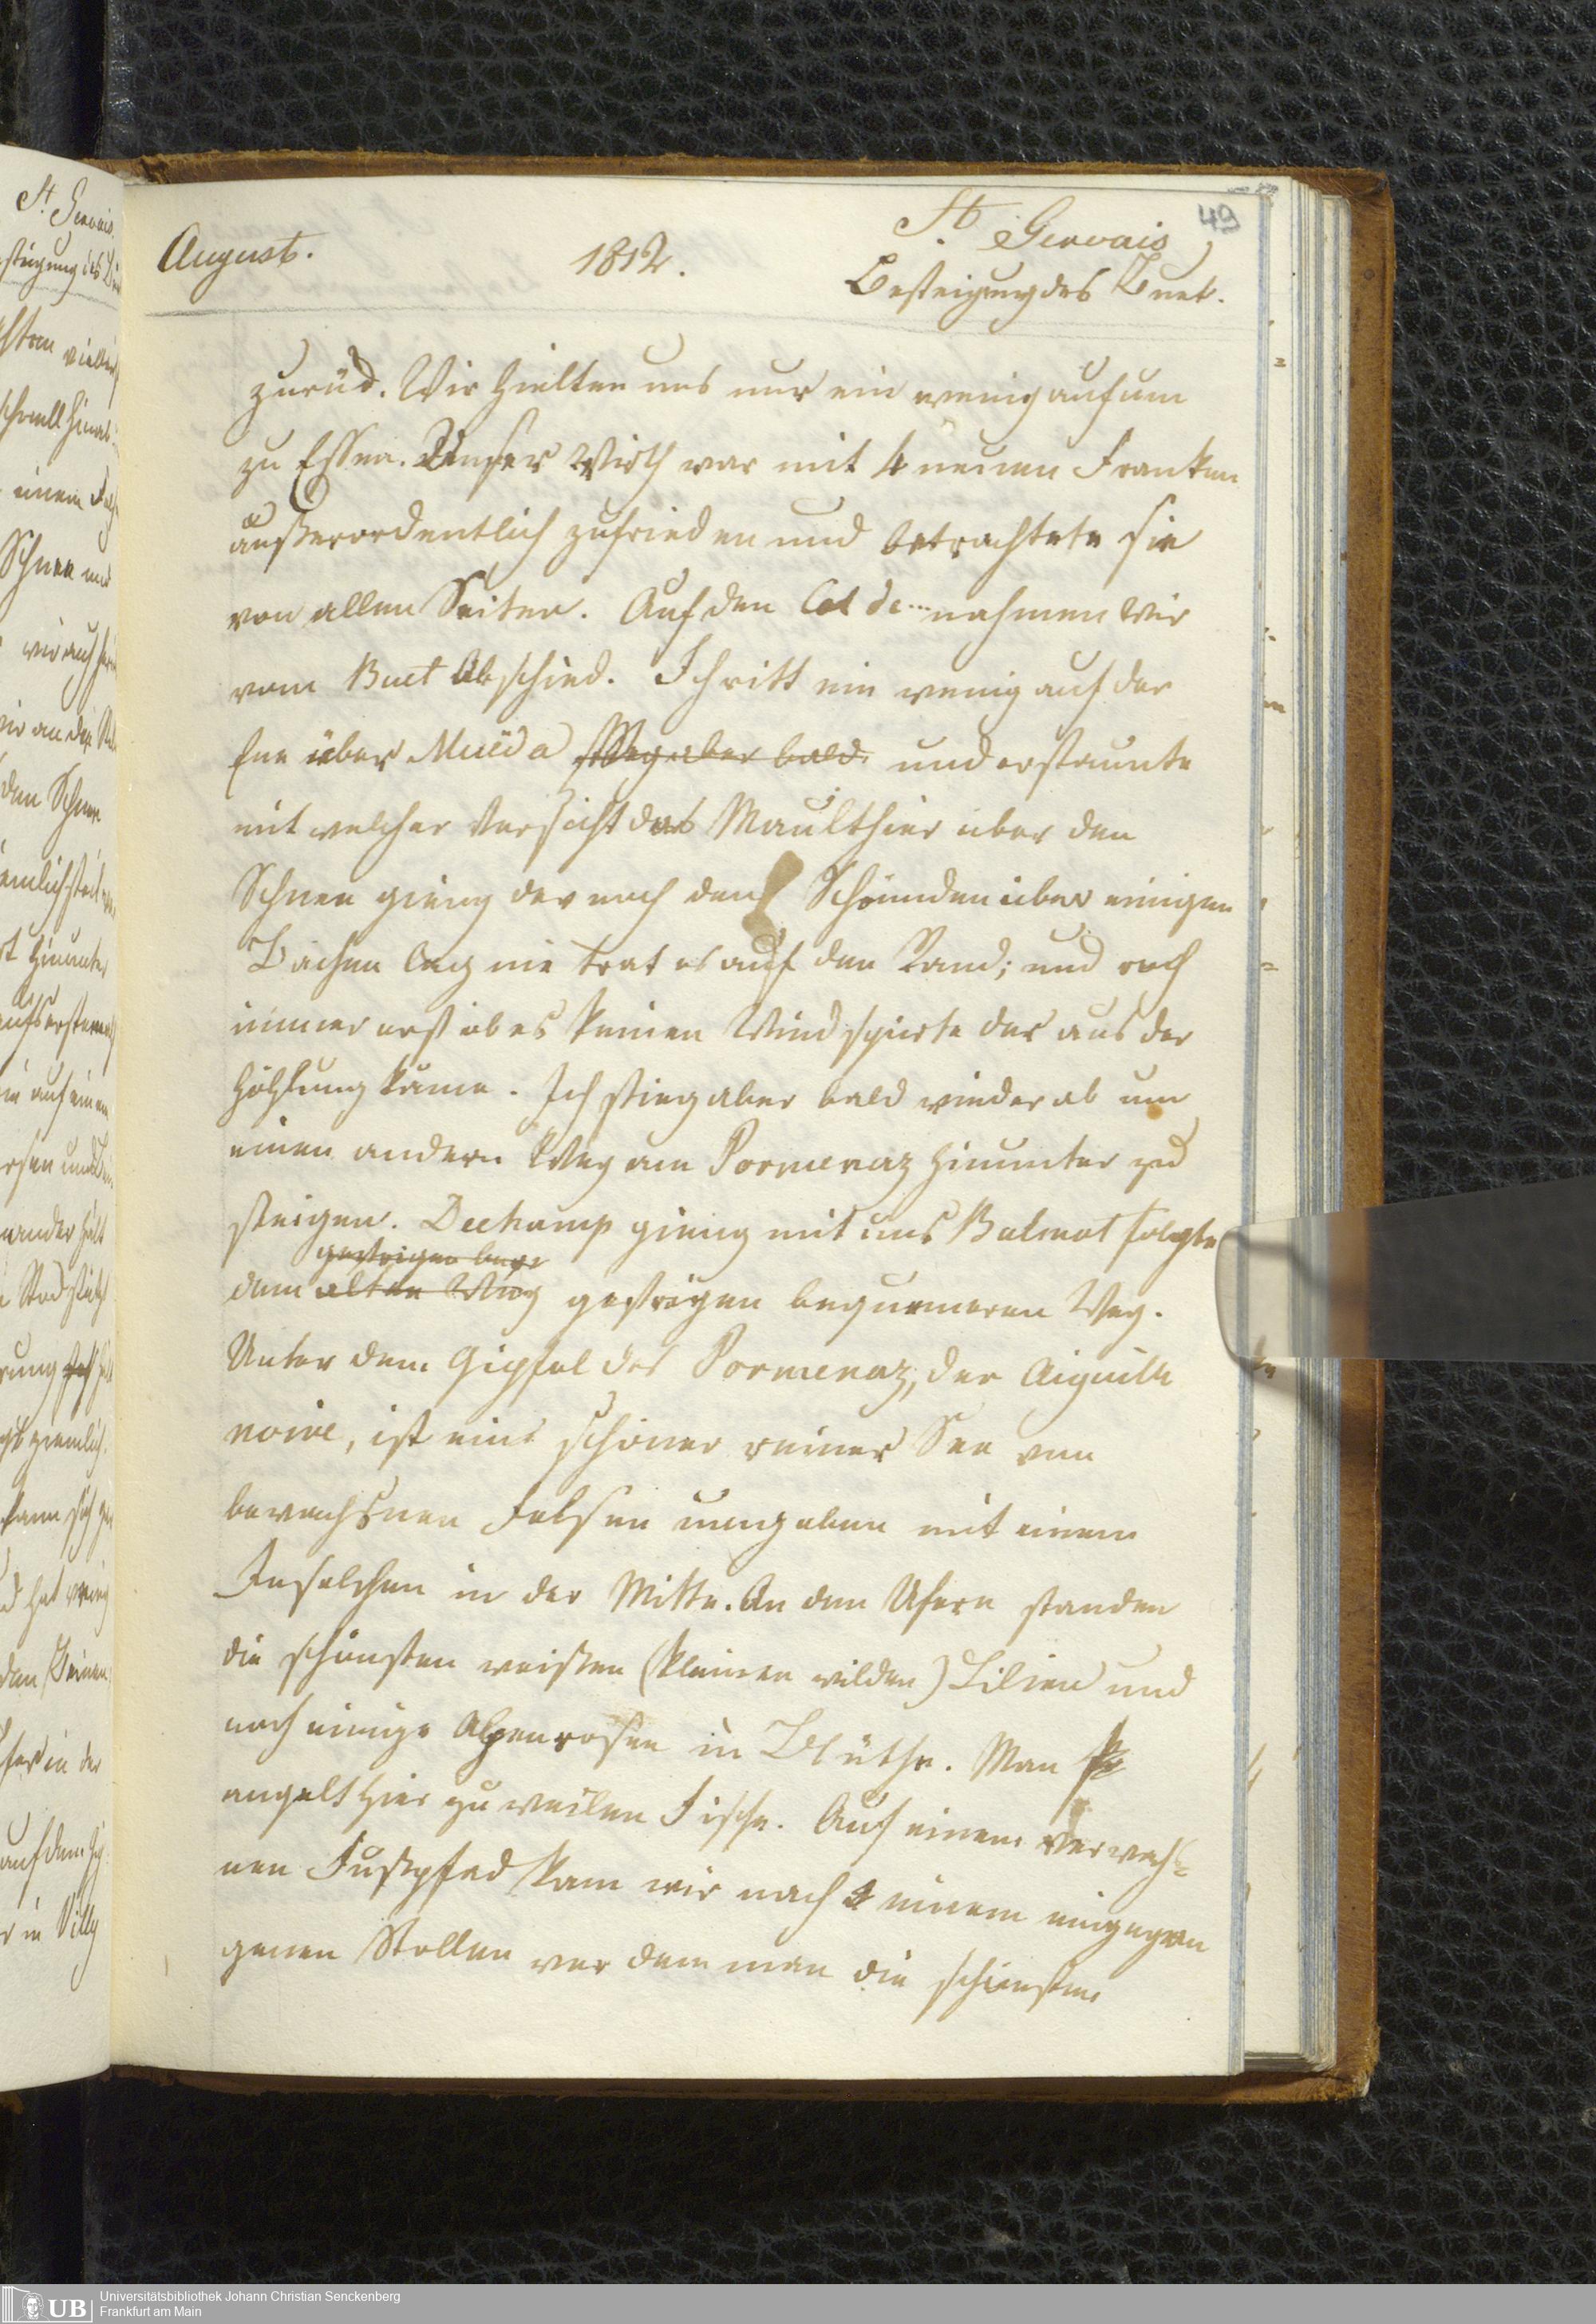 St Gervais
49
August.
1812.
Besteigung des Buet.
zurück. Wir hielten uns nur ein wenig auf um
zu Essen. Unser Wirth war mit 4 neuen Franken
außerordentlich zufrieden und betrachtete sie
von allen Seiten. Auf den Col de... nahmen wir
vom Buet Abschied. Ich ritt ein wenig auf der
über und erstaunte
mit welcher Vorsicht das Maulthier über den
Schnee gieng der nach den über einigen
Bächen lag nie trat es auf den Rand; und roch
immer erst ob es keinen Wind spürte der aus der
Höhlung käme. Ich stieg aber bald wieder ab um
einen andern Weg am Pormenaz hinunter zu
steigen. Dechamp gieng mit uns Balmat folgte
gestrigen beque
dem alten Weg gestrigen bequemeren Weg.
Unter dem Gipfel des Pormenaz, der Aiguille
noire, ist ein schöner reiner See von
bewachsnen Felsen umgeben mit einem
Inselchen in der Mitte. An den Ufern standen
die schönsten weißen (kleinen wilden) Lilien und
noch einige Alpenrosen in Blüthe. Man
angelt hier zu weilen Fische. Auf einem verwachs=
nen Fußpfad kam wir nach einem eingegan
genen Stollen vor dem man die schönsten
St Gervais
Schnee und
dem Schnee
in Villy
UB
Universitätsbibliothek Johann Christian Senckenberg
Frankfurt am Main